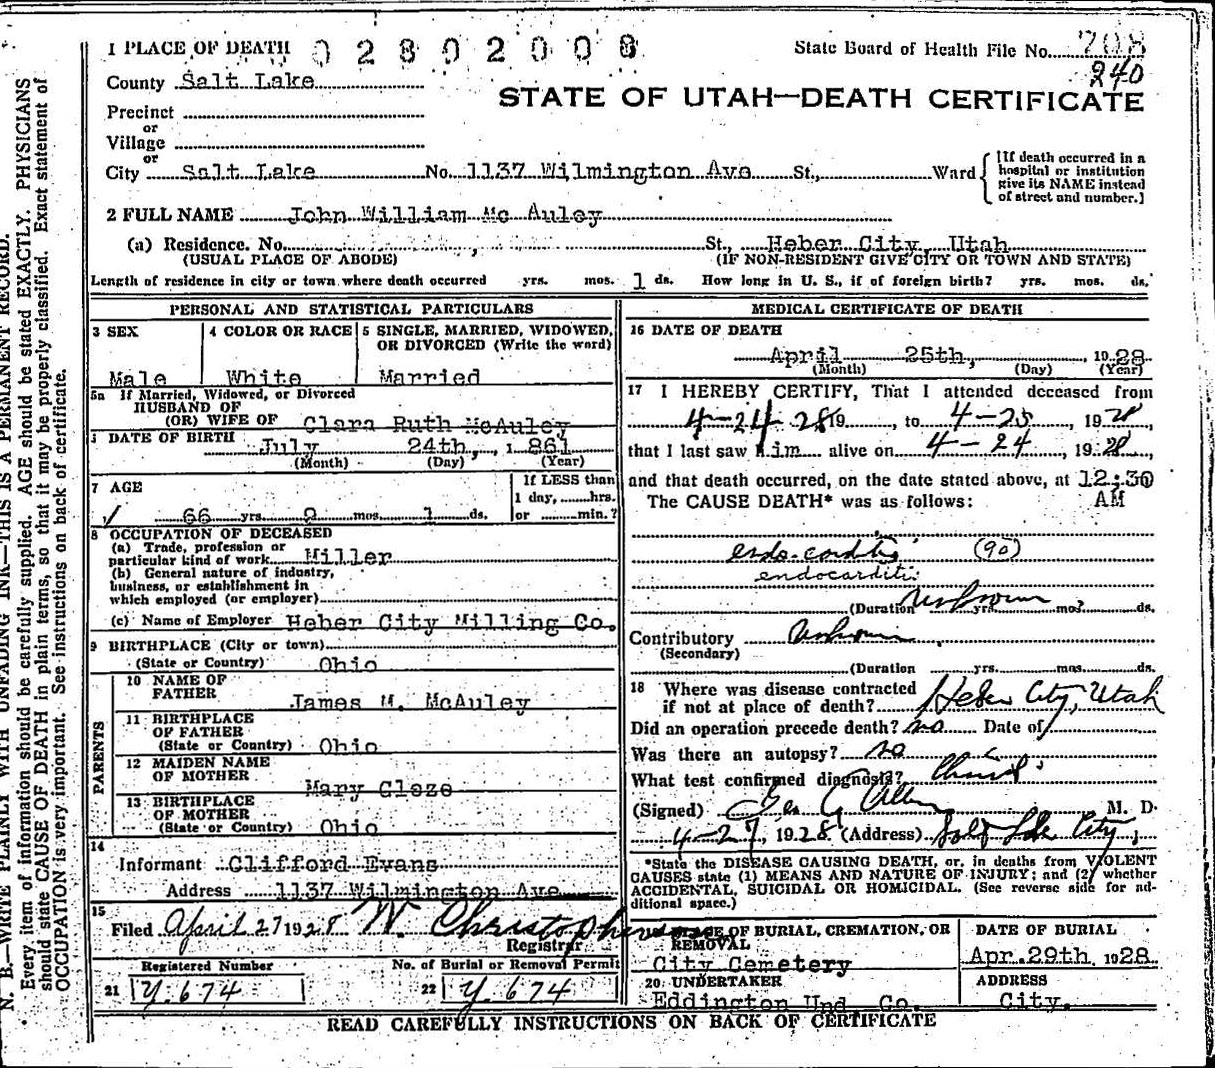 1 PLACE OF DEATH 02802008 State Board of Health File No. 708
240
County Salt Lake
STATE OF UTAH—DEATH CERTIFICATE
Precinct
or
Village
or
City Salt Lake No. 1137 Wilmington Ave St., Ward
[If death occurred in a hospital or institution give its NAME instead of street and number.]
2 FULL NAME John William Mc Auley
(a) Residence. No. St., Heber City, Utah
(USUAL PLACE OF ABODE) (IF NON-RESIDENT GIVE CITY OR TOWN AND STATE)
Length of residence in city or town where death occurred yrs. mos. 1 ds. How long in U. S., if of foreign birth? yrs. mos. ds.
PERSONAL AND STATISTICAL PARTICULARS
3 SEX
Male
4 COLOR OR RACE
White
5 SINGLE, MARRIED, WIDOWED, OR DIVORCED (Write the word)
Married
5a If Married, Widowed, or Divorced
HUSBAND OF
(OR) WIFE OF Clara Ruth McAuley
DATE OF BIRTH July 24th, 1861
(Month) (Day) (Year)
7 AGE
66 yrs. 9 mos. 1 ds.
If LESS than
1 day, hrs.
or min.?
8 OCCUPATION OF DECEASED
(a) Trade, profession or
particular kind of work Miller
(b) General nature of industry,
business, or establishment in
which employed (or employer)
(c) Name of Employer Heber City Milling Co.
9 BIRTHPLACE (City or town)
(State or Country) Ohio
PARENTS
10 NAME OF
FATHER James M. McAuley
11 BIRTHPLACE
OF FATHER
(State or Country) Ohio
12 MAIDEN NAME
OF MOTHER
Mary Cloze
13 BIRTHPLACE
OF MOTHER
(State or Country) Ohio
14
Informant Clifford Evans
Address 1137 Wilmington Ave
15
Filed April 27 1928 W. Christopherson
Registrar
Registered Number
21 Y. 674
No. of Burial or Removal Permit
22 Y. 674
MEDICAL CERTIFICATE OF DEATH
16 DATE OF DEATH
April 25th, 1928
(Month) (Day) (Year)
17 I HEREBY CERTIFY, That I attended deceased from
4-24-28 19, to 4-25, 1928,
that I last saw him alive on 4-24, 1928,
and that death occurred, on the date stated above, at 12:30
The CAUSE DEATH* was as follows: AM
endo-carditis (90)
endocarditis
(Duration Unknown yrs. mo? ds.
Contributory Unknown
(Secondary)
(Duration yrs. mos. ds.
18 Where was disease contracted
if not at place of death? Heber City, Utah
Did an operation precede death? no Date of
Was there an autopsy? no
What test confirmed diagnosis?
(Signed) Geo G Allen M. D.
4-27, 1928 (Address) Salt Lake City,
*State the DISEASE CAUSING DEATH, or, in deaths from VIOLENT
CAUSES state (1) MEANS AND NATURE OF INJURY; and (2) whether
ACCIDENTAL, SUICIDAL OR HOMICIDAL. (See reverse side for ad-
ditional space.)
PLACE OF BURIAL, CREMATION, OR
REMOVAL
City Cemetery
DATE OF BURIAL
Apr. 29th 1928
20 UNDERTAKER
Eddington Und. Co.
ADDRESS
City.
READ CAREFULLY INSTRUCTIONS ON BACK OF CERTIFICATE
N. B.—WRITE PLAINLY WITH UNFADING INK—THIS IS A PERMANENT RECORD.
Every item of information should be carefully supplied. AGE should be stated EXACTLY. PHYSICIANS
should state CAUSE OF DEATH in plain terms, so that it may be properly classified. Exact statement of
OCCUPATION is very important. See instructions on back of certificate.